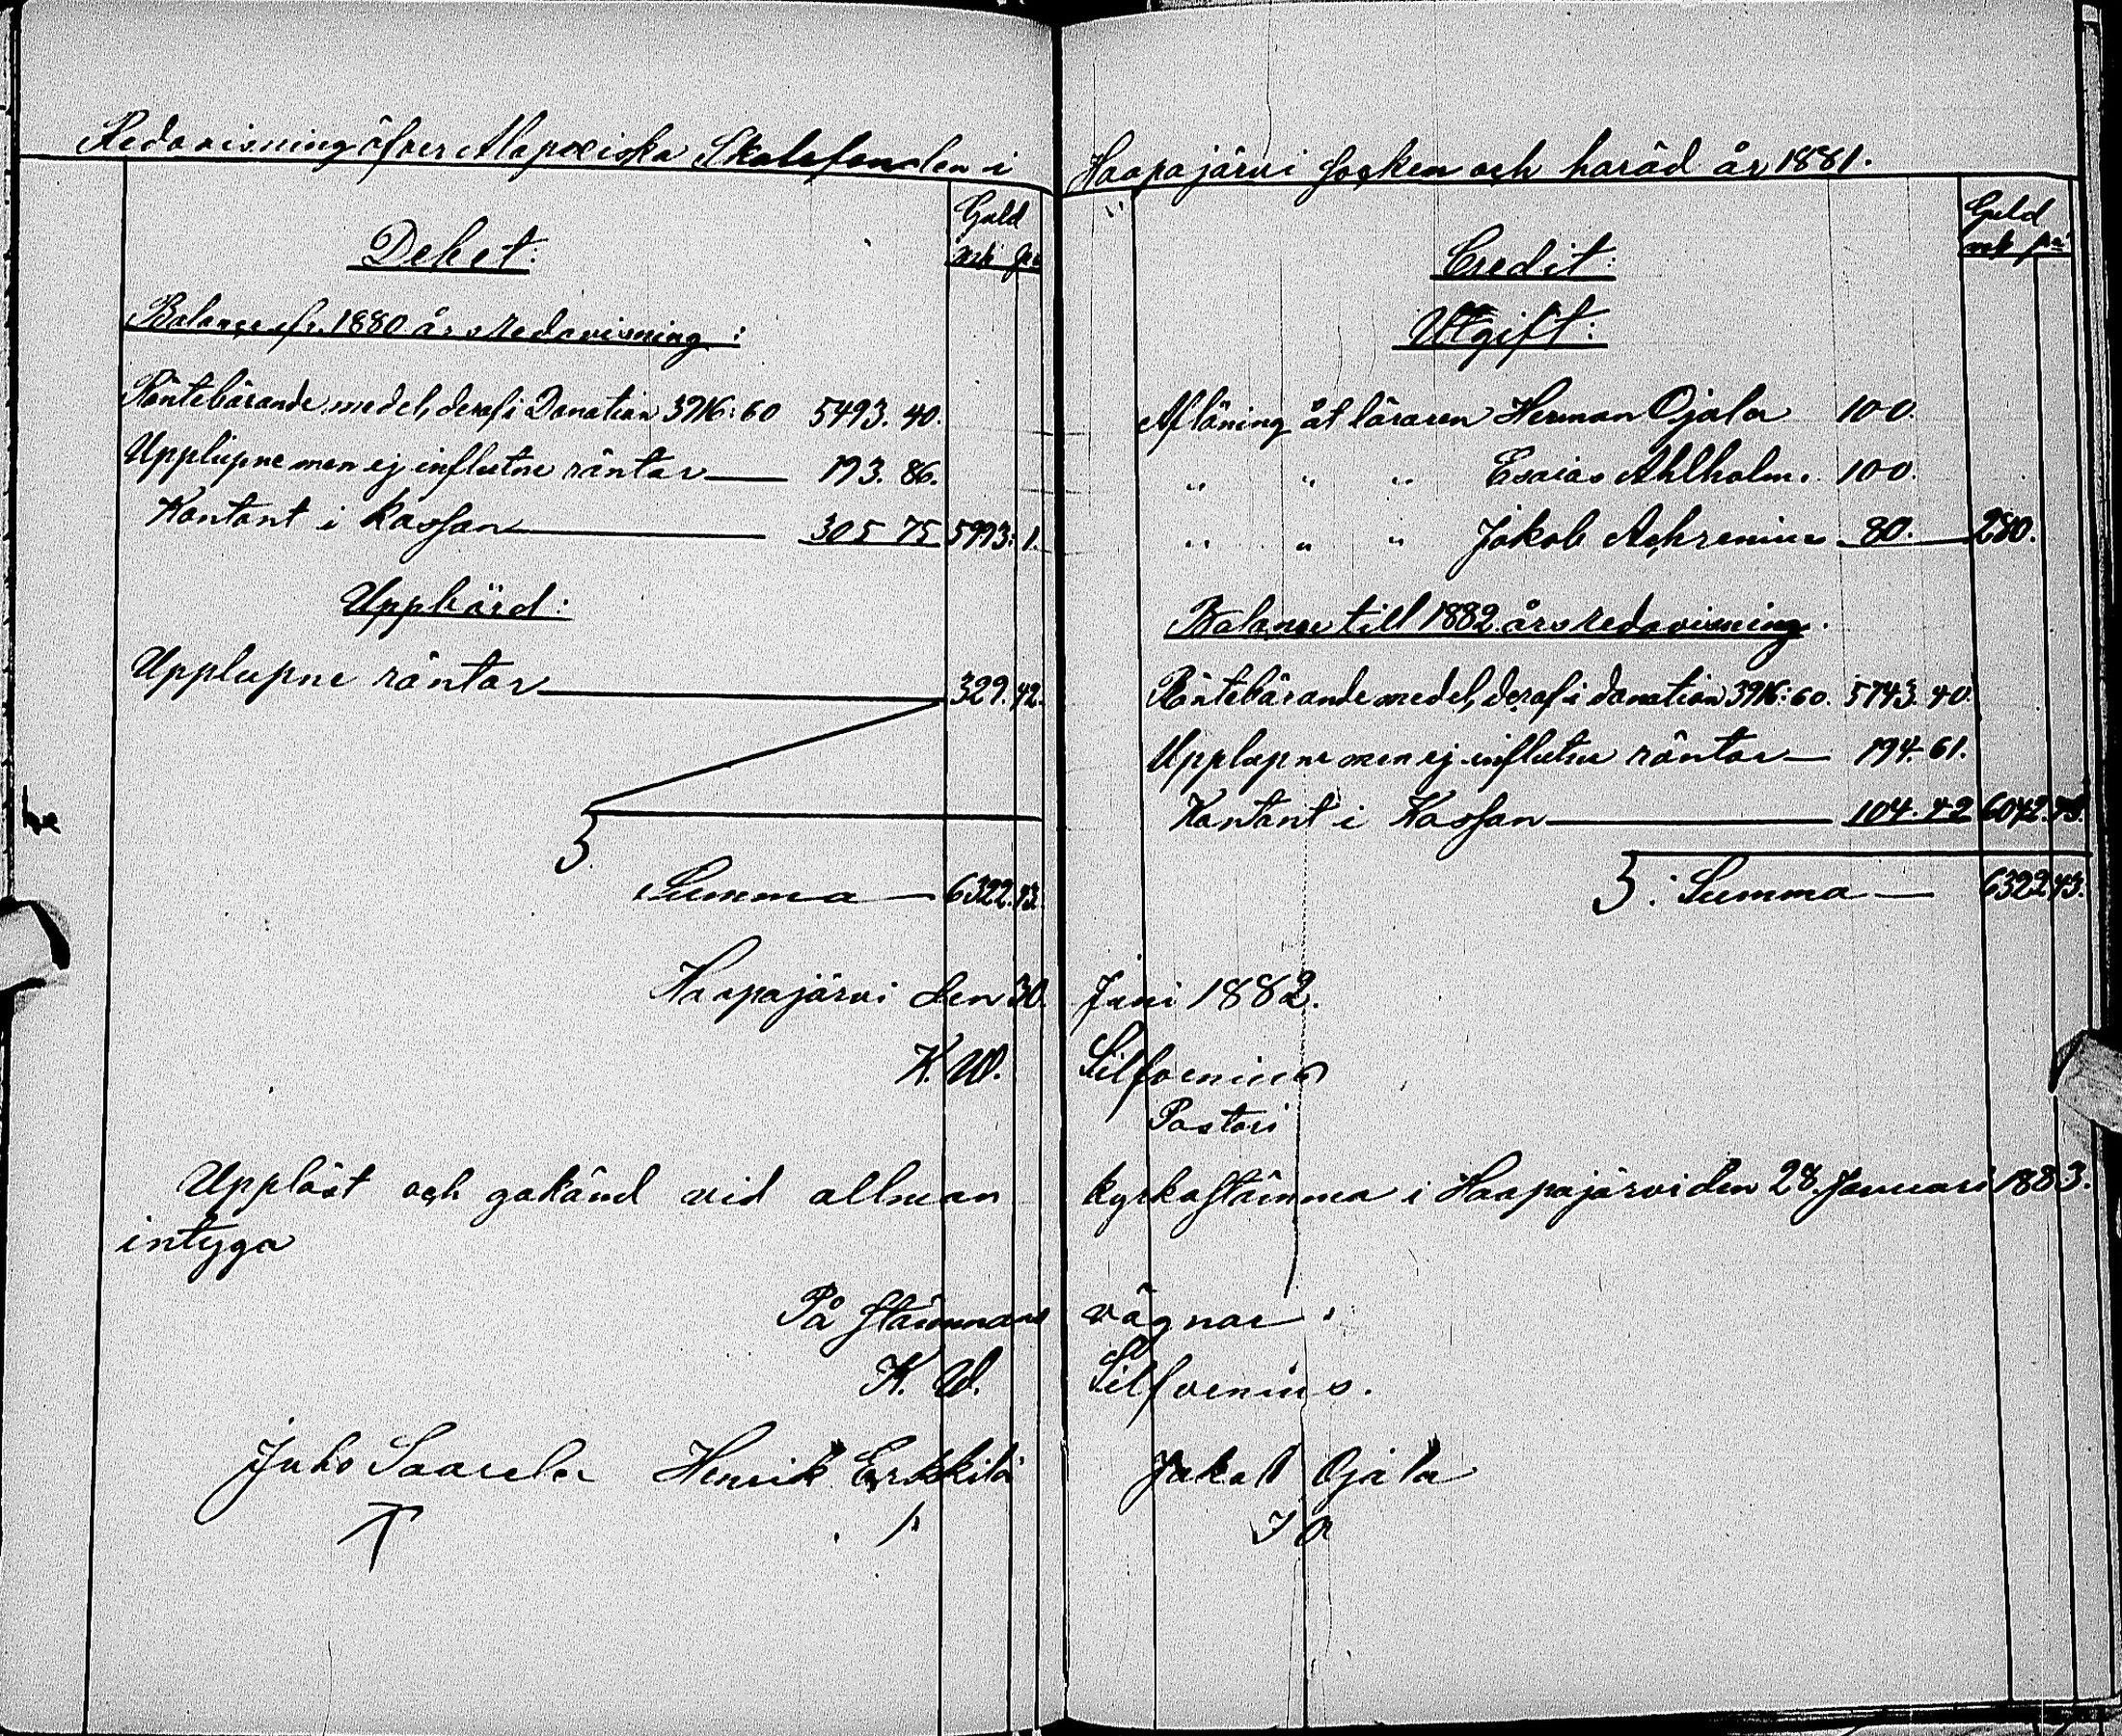 Redovisning öfver Alapoeiska Skolefonden i Haapajärvi socken och häräd år 1881.
Guld
mk pi
Debet:
Balance fr. 1880 års redovisning:
Räntebärande medel, deraf i Donation 3916:60 5493. 40.
Upplupne men ej influtne räntor 193. 86.
Kontant i kassan 305 75 5993: 1.
Uppbörd:
Upplupne räntor 329. 42.
Summa 6322. 43.
Guld
mk pi
Credit:
Utgift:
Aflöning åt läraren Herman Ojala 100.
" " " Esaias Ahlholm. 100.
" " " Jakob Achrenius 80. 280.
Balance till 1882 års redovisning.
Räntebärande medel, deraf i donation 3916:60. 5743. 40.
Upplupne men ej influtne räntor 194. 61.
Kontant i Kassan 104. 42 6042. 43.
Summa 6322 43.
Haapajärvi den 30. Juni 1882.
K. W. Silfvenius
Pastori
Uppläst och gokänd vid allman kyrkostämma i Haapajärvi den 28. Januari 1883.
intyga
På stämmans vägnar:
K. W. Silfvenius.
Juho Saarela Henrik Erkkilä Jakob Ojala
J O